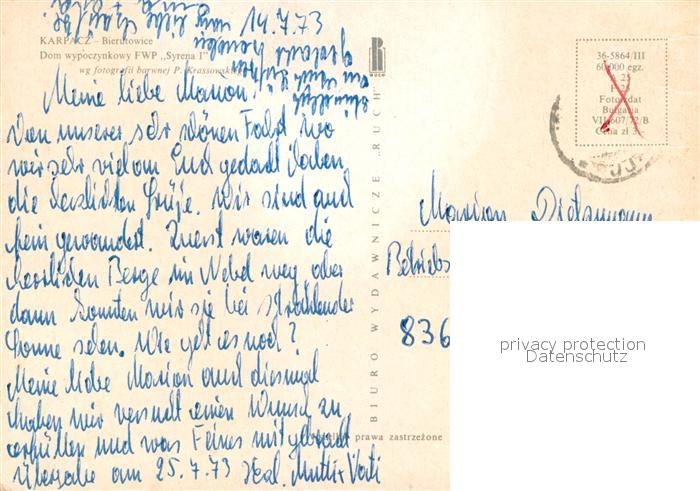 14.7.73
KARPACZ — Bierutowice
Dom wypoczynkowy FWP „Syrena I"
wg fotografii barwnej P. Krassowski
Meine liebe Marion!
Von unserer sehr schönen Fahrt wo
wir sehr viel an Euch gedacht haben,
die herzlichsten Grüße. Wir sind auch
fein gewandert. Zuerst waren die
herrlichen Berge im Nebel weg aber
dann konnten wir sie bei strahlender
Sonne sehen. Wie geht es noch?
Meine liebe Marion auch diesmal
haben wir versucht einen Wunsch zu
erfüllen und was Feines mitgebracht
Übergabe am 25.7.73 Herzl. Mutti + Vati
BIURO WYDAWNICZE „RUCH"
RUCH
prawa zastrzeżone
36-5864/III
60.000 egz.
25
F 25
Fotochdat
Bulgaria
Cena zł
Marion
Betriebs
836
privacy protection
Datenschutz